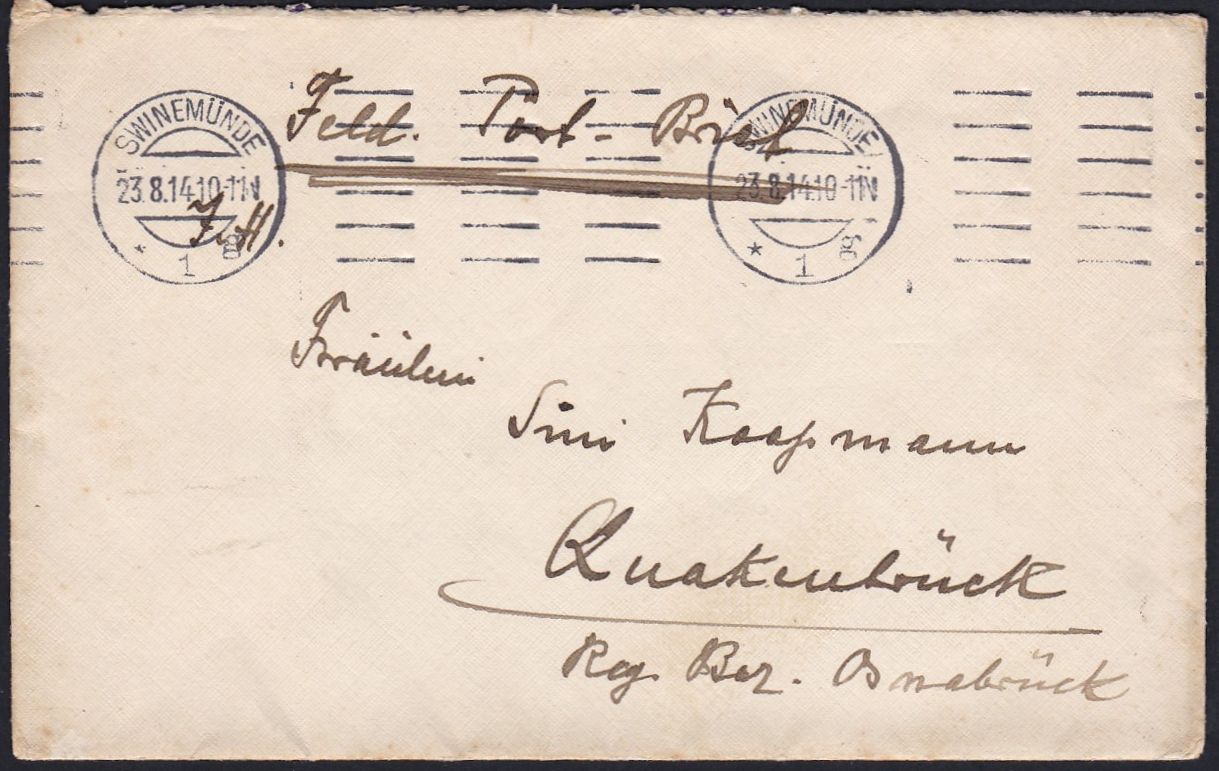 Feld. Post-Brief
SWINEMÜNDE
23.8.14.10-11V
* 1 g
SWINEMÜNDE
23.8.14.10-11V
* 1 g
Fräulein
Sini Koopmann
Quakenbrück
Reg. Bez. Osnabrück